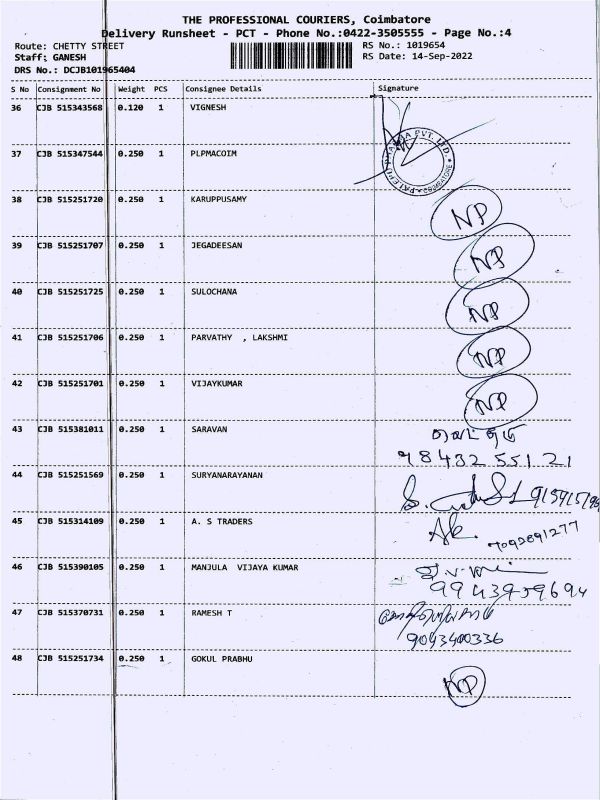 THE PROFESSIONAL COURIERS, Coimbatore
Delivery Runsheet - PCT - Phone No.:0422-3505555 - Page No.:4
Route: CHETTY STREET RS No.: 1019654
Staff: GANESH RS Date: 14-Sep-2022
DRS No.: DCJB101965404
S No Consignment No Weight PCS Consignee Details Signature
36 CJB 515343568 0.120 1 VIGNESH
37 CJB 515347544 0.250 1 PLPMACOIM
PVT. LTD.
COIMBATORE
38 CJB 515251720 0.250 1 KARUPPUSAMY NP
39 CJB 515251707 0.250 1 JEGADEESAN NP
40 CJB 515251725 0.250 1 SULOCHANA NP
41 CJB 515251706 0.250 1 PARVATHY , LAKSHMI NP
42 CJB 515251701 0.250 1 VIJAYKUMAR NP
43 CJB 515381011 0.250 1 SARAVAN
98432 55121
44 CJB 515251569 0.250 1 SURYANARAYANAN
45 CJB 515314109 0.250 1 A. S TRADERS
7092891277
46 CJB 515390105 0.250 1 MANJULA VIJAYA KUMAR
9943959694
47 CJB 515370731 0.250 1 RAMESH T
9043400336
48 CJB 515251734 0.250 1 GOKUL PRABHU NP